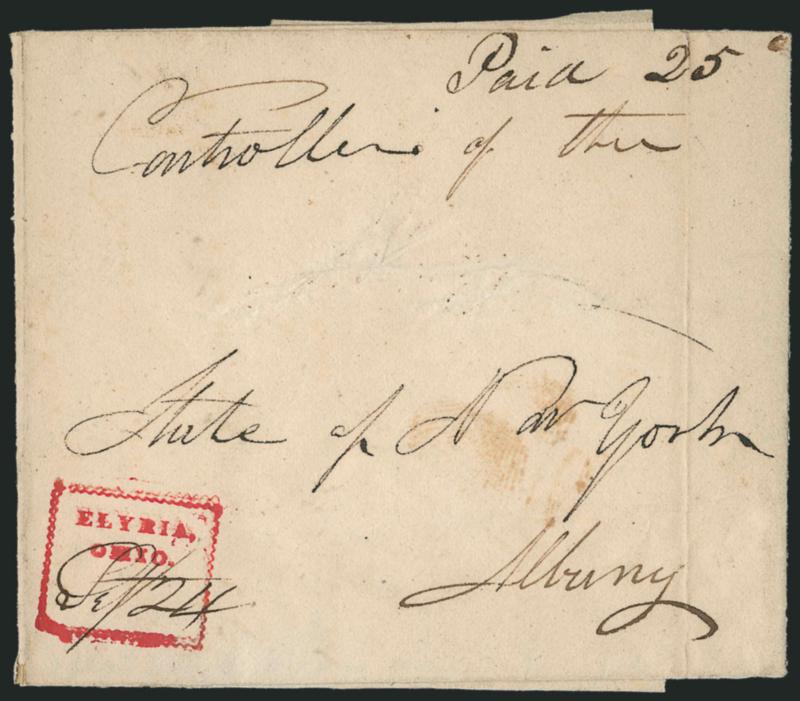 Paid 25
Controller of the
State of New York
Albany
ELYRIA,
OHIO.
Sept 24